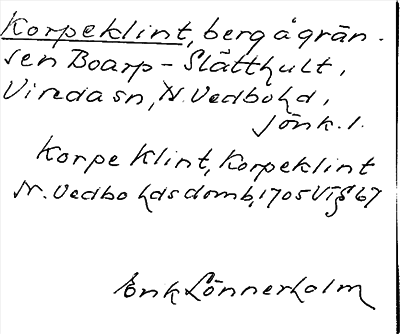 Korpeklint, berg å grän-
sen Boarp - Slätthult,
Virda sn, N. Vedbo hd,
Jönk. l.
Korpe Klint, Korpeklint
N. Vedbo hds domb, 1705 VT § 67
Erik Lönnerholm